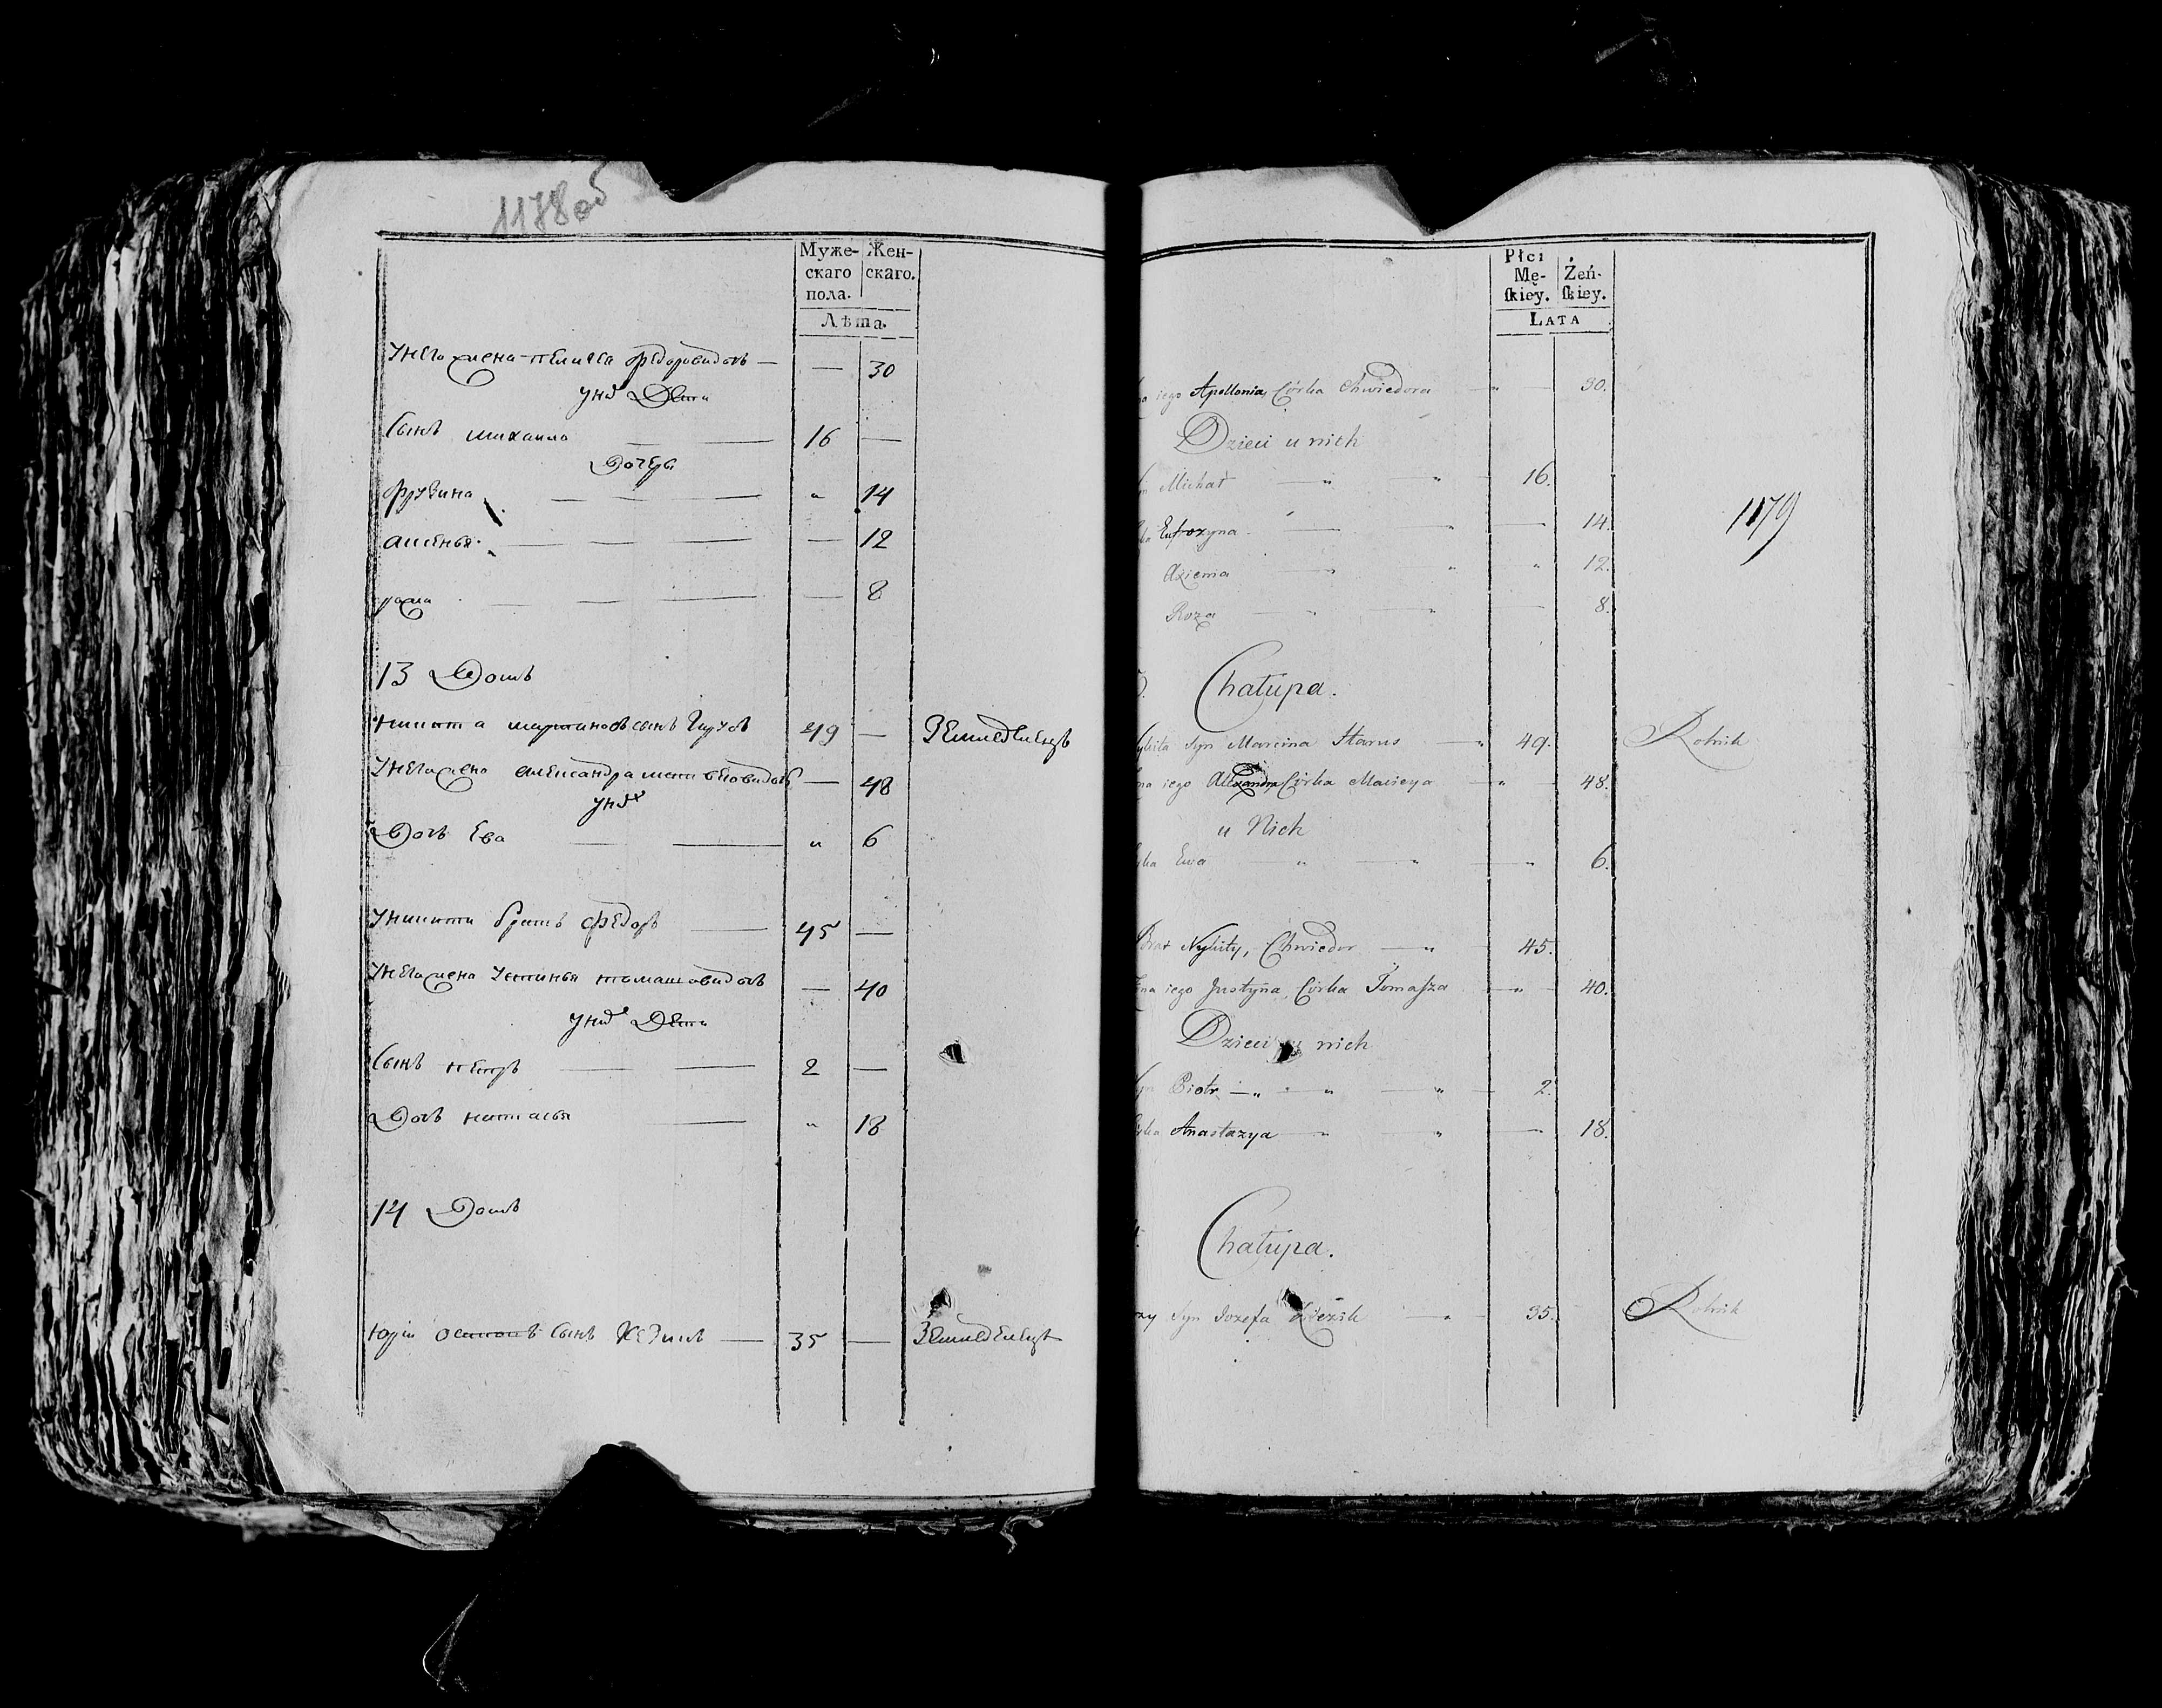 1178об
Муже- Жен-
скаго скаго.
пола.
Лѣта.
Унего жена пелагея федоровидочь — — 30
Унихъ Дети
Сынъ михаило — — 16 —
Дочери
фрузина — — — " 14
аксенья — — — — 12
— — — — 8
13 Домъ
никита мартиновъ сынъ 49 — Земледелецъ
Унего жена александра матвеевидочь — 48
Унихъ
Дочь Ева — — " 6
Уникиты братъ федоръ — 45 —
Унего жена Устинья томашовидочь — 40
Унихъ Дети
Сынъ петръ — — 2 —
Дочь наталья — " 18
14 Домъ
Юрiи осиповъ Сынъ — 35 — Земледелецъ
Płci
Mę- Żeń-
skiey. skiey.
LATA
iego Apollonia, Córka Chwiedora " — 30.
Dzieci u nich
Michał — " " 16.
Eufrozyna — " — 14.
Axienia — " " 12.
Roza — " — " — 8.
1179
Chałupa.
Syn Marcina — " 49. Rolnik
iego Alexandra Córka Macieya " — 48.
u Nich
Ewa " — " — " 6.
Brat Nykity, Chwiedor — " 45.
iego Justyna, Córka Tomasza — " — 40.
Dzieci u nich
Piotr — " — " — " — 2.
Anastazya — " " — 18.
Chałupa.
Syn Jozefa — " 35. Rolnik